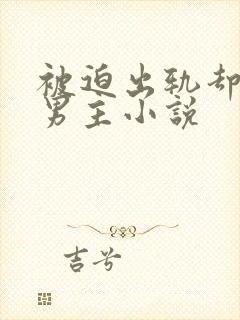 被迫出轨却
男主小说
吉兮